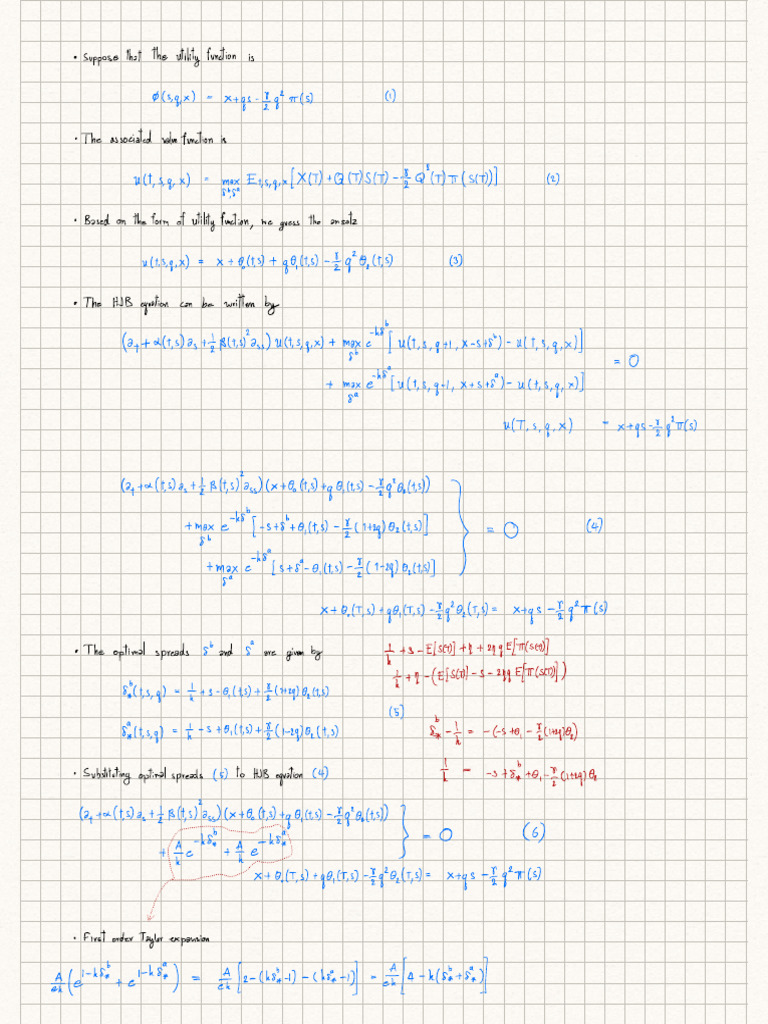 • Suppose that the utility function is
φ(s,q,x) = x+qs-γ/2 q² π(s) (1)
• The associated value function is
u(t,s,q,x) = max_{δᵇ,δᵃ} E_{t,s,q,x}[X(T)+Q(T)S(T)-γ/2 Q²(T)π(S(T))] (2)
• Based on the form of utility function, we guess the ansatz
u(t,s,q,x) = x+θ₀(t,s)+qθ₁(t,s)-γ/2 q²θ₂(t,s) (3)
• The HJB equation can be written by
(∂_t+α(t,s)∂_s+1/2 β(t,s)²∂_ss)u(t,s,q,x)+max_{δᵇ} e^{-kδᵇ}[u(t,s,q+1,x-s+δᵇ)-u(t,s,q,x)]
+max_{δᵃ} e^{-kδᵃ}[u(t,s,q-1,x+s+δᵃ)-u(t,s,q,x)] = 0
u(T,s,q,x) = x+qs-γ/2 q²π(s)
(∂_t+α(t,s)∂_s+1/2 β(t,s)²∂_ss)(x+θ₀(t,s)+qθ₁(t,s)-γ/2 q²θ₂(t,s))
+max_{δᵇ} e^{-kδᵇ}[-s+δᵇ+θ₁(t,s)-γ/2(1+2q)θ₂(t,s)] = 0 (4)
+max_{δᵃ} e^{-kδᵃ}[s+δᵃ-θ₁(t,s)-γ/2(1-2q)θ₂(t,s)]
x+θ₀(T,s)+qθ₁(T,s)-γ/2 q²θ₂(T,s) = x+qs-γ/2 q²π(s)
• The optimal spreads δᵇ and δᵃ are given by
1/k+s-E[S(T)]+η+2ηqE[π(S(T)]
1/k+η-(E[S(T)]-s-2ηqE[π(S(T)])
δ*ᵇ(t,s,q) = 1/k+s-θ₁(t,s)+γ/2(1+2q)θ₂(t,s)
δ*ᵃ(t,s,q) = 1/k-s+θ₁(t,s)+γ/2(1-2q)θ₂(t,s)
(5)
δ*ᵇ-1/k = -(-s+θ₁-γ/2(1+2q)θ₂)
1/k = -s+δ*ᵇ+θ₁-γ/2(1+2q)θ₂
• Substituting optimal spreads (5) to HJB equation (4)
(∂_t+α(t,s)∂_s+1/2 β(t,s)²∂_ss)(x+θ₀(t,s)+qθ₁(t,s)-γ/2 q²θ₂(t,s))
+A/k e^{-kδ*ᵇ}+A/k e^{-kδ*ᵃ} = 0 (6)
x+θ₀(T,s)+qθ₁(T,s)-γ/2 q²θ₂(T,s) = x+qs-γ/2 q²π(s)
• First order Taylor expansion
A/ek(e^{1-kδ*ᵇ}+e^{1-kδ*ᵃ}) = A/ek[2-(kδ*ᵇ-1)-(kδ*ᵃ-1)] = A/ek[4-k(δ*ᵇ+δ*ᵃ)]